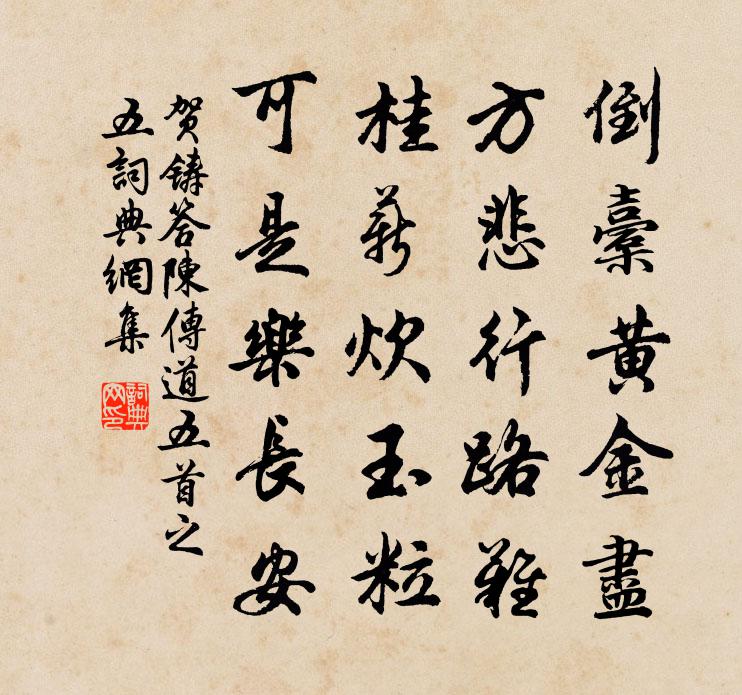 倒橐黄金盡
方悲行路難
桂薪炊玉粒
可是樂長安
贺鑄答陳傳道五首之
五詞典網集
詞典网印